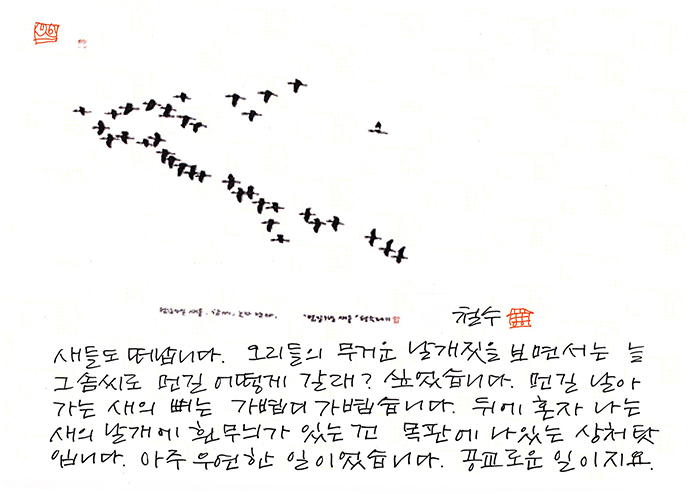 철수
새들도 떠납니다. 오리들의 무거운 날개짓을 보면서는 늘
그 솜씨로 먼길 어떻게 갈래? 싶었습니다. 먼길 날아
가는 새의 뼈는 가볍디 가볍습니다. 뒤에 혼자 나는
새의 날개에 흰무늬가 있는 건 목판에 나있는 상처 탓
입니다. 아주 우연한 일이었습니다. 공교로운 일이지요.